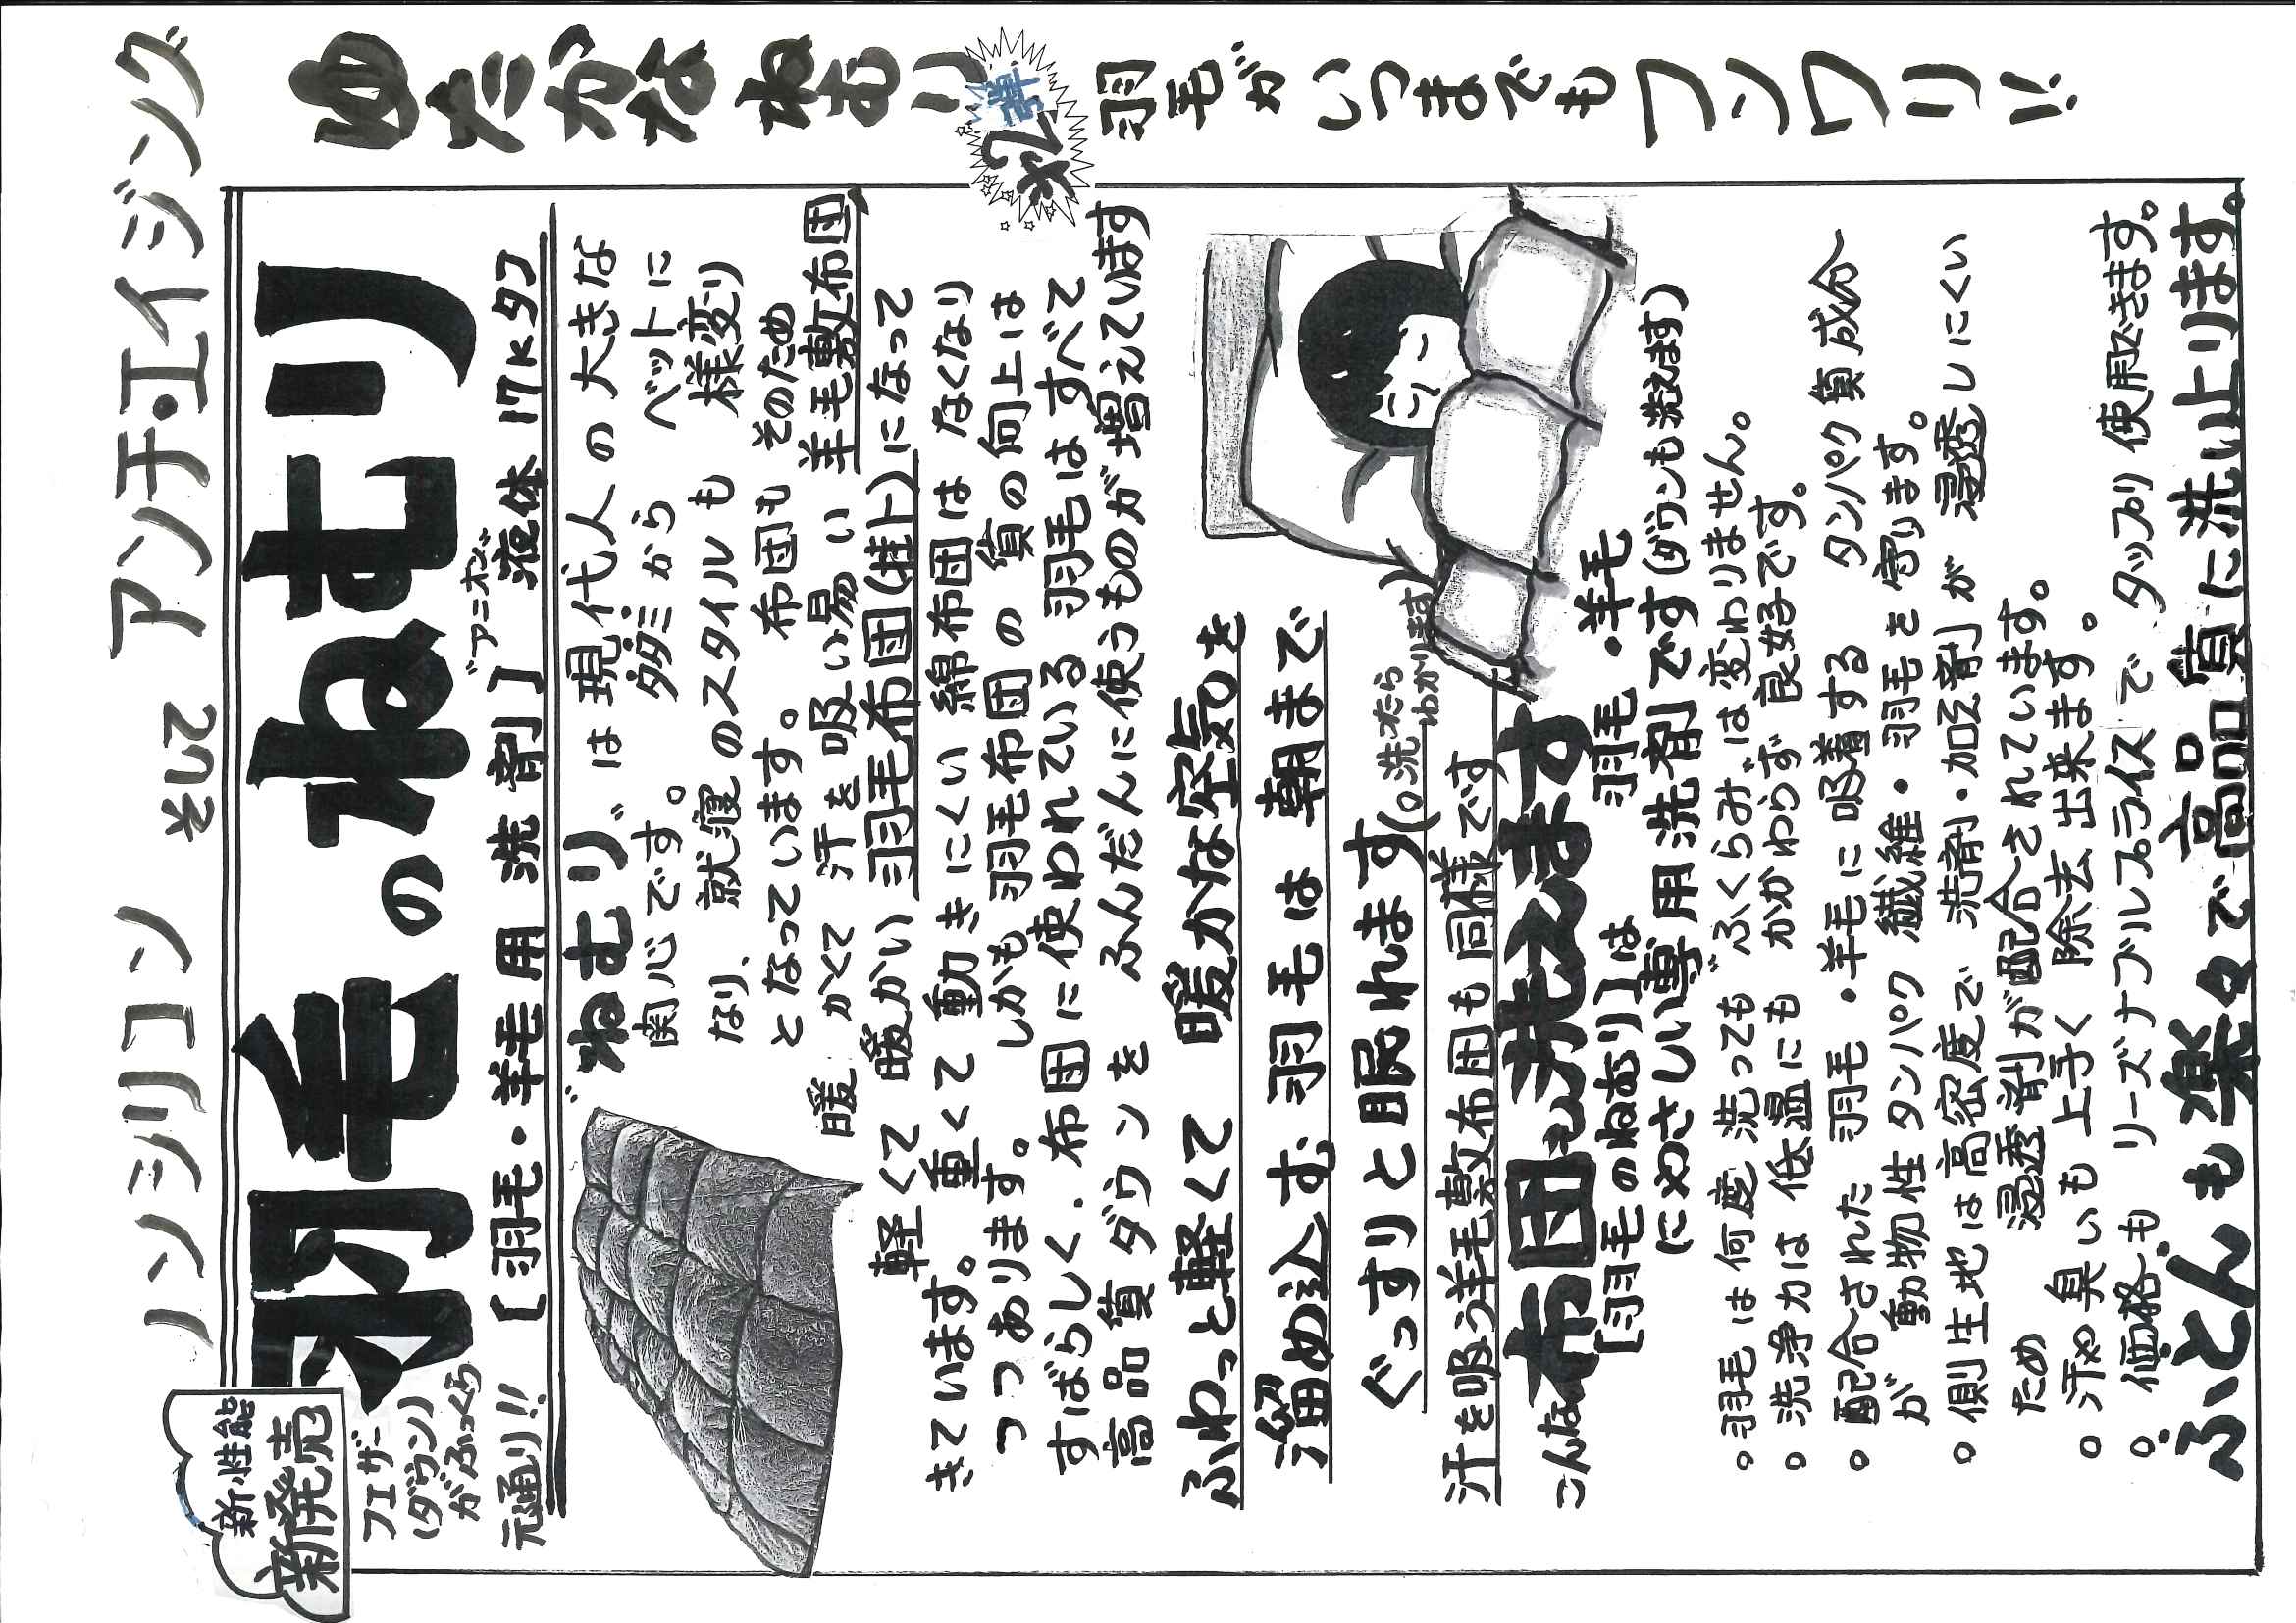 ノンシリコン そして アンチ・エイジング
新性能
新発売
羽毛のねむり
フェザー
(ダウン)
がふっくら
元通り!!
[羽毛・羊毛用洗剤] "アニオン" 液体 17Kタコ
"ねむり"は現代人の大きな
関心です。 タタミから ベットに
なり、就寝のスタイルも 様変り
となっています。 布団も そのため
暖かくて 汗を吸い易い 羊毛敷布団、
軽くて 暖かい 羽毛布団(掛ト)になって
きています。 重くて 動きにくい 綿布団は なくなり
つつあります。 しかも 羽毛布団の 質の向上は
すばらしく、布団に使われている 羽毛は すべて
高品質ダウンを ふんだんに使うものが増えています
ふわっと軽くて 暖かな空気を
溜め込む 羽毛は 朝まで
ぐっすりと 眠れます(。洗ったら
わかります)
汗を吸う羊毛敷布団も 同様です
こんな布団も洗えます
[羽毛のねむり]は 羽毛・羊毛
にやさしい専用洗剤です(ダウンも洗えます)
○羽毛は何度洗っても"ふくらみ"は変わりません。
○洗浄力は 低温にも かかわらず 良好です。
○配合された 羽毛・羊毛に 吸着する タンパク質成分
が 動物性タンパク 繊維・羽毛を守ります。
○側生地は高密度で 洗剤・加工剤が 浸透しにくい
ため 浸透剤が配合されています。
○汗や臭いも 上手く 除去出来ます。
○価格も リーズナブルプライスで タップリ使用できます。
ふとんも楽々で高品質に洗い上ります。
ゆたかなねむり
第2弾
羽毛がいつまでもフンワリ!!